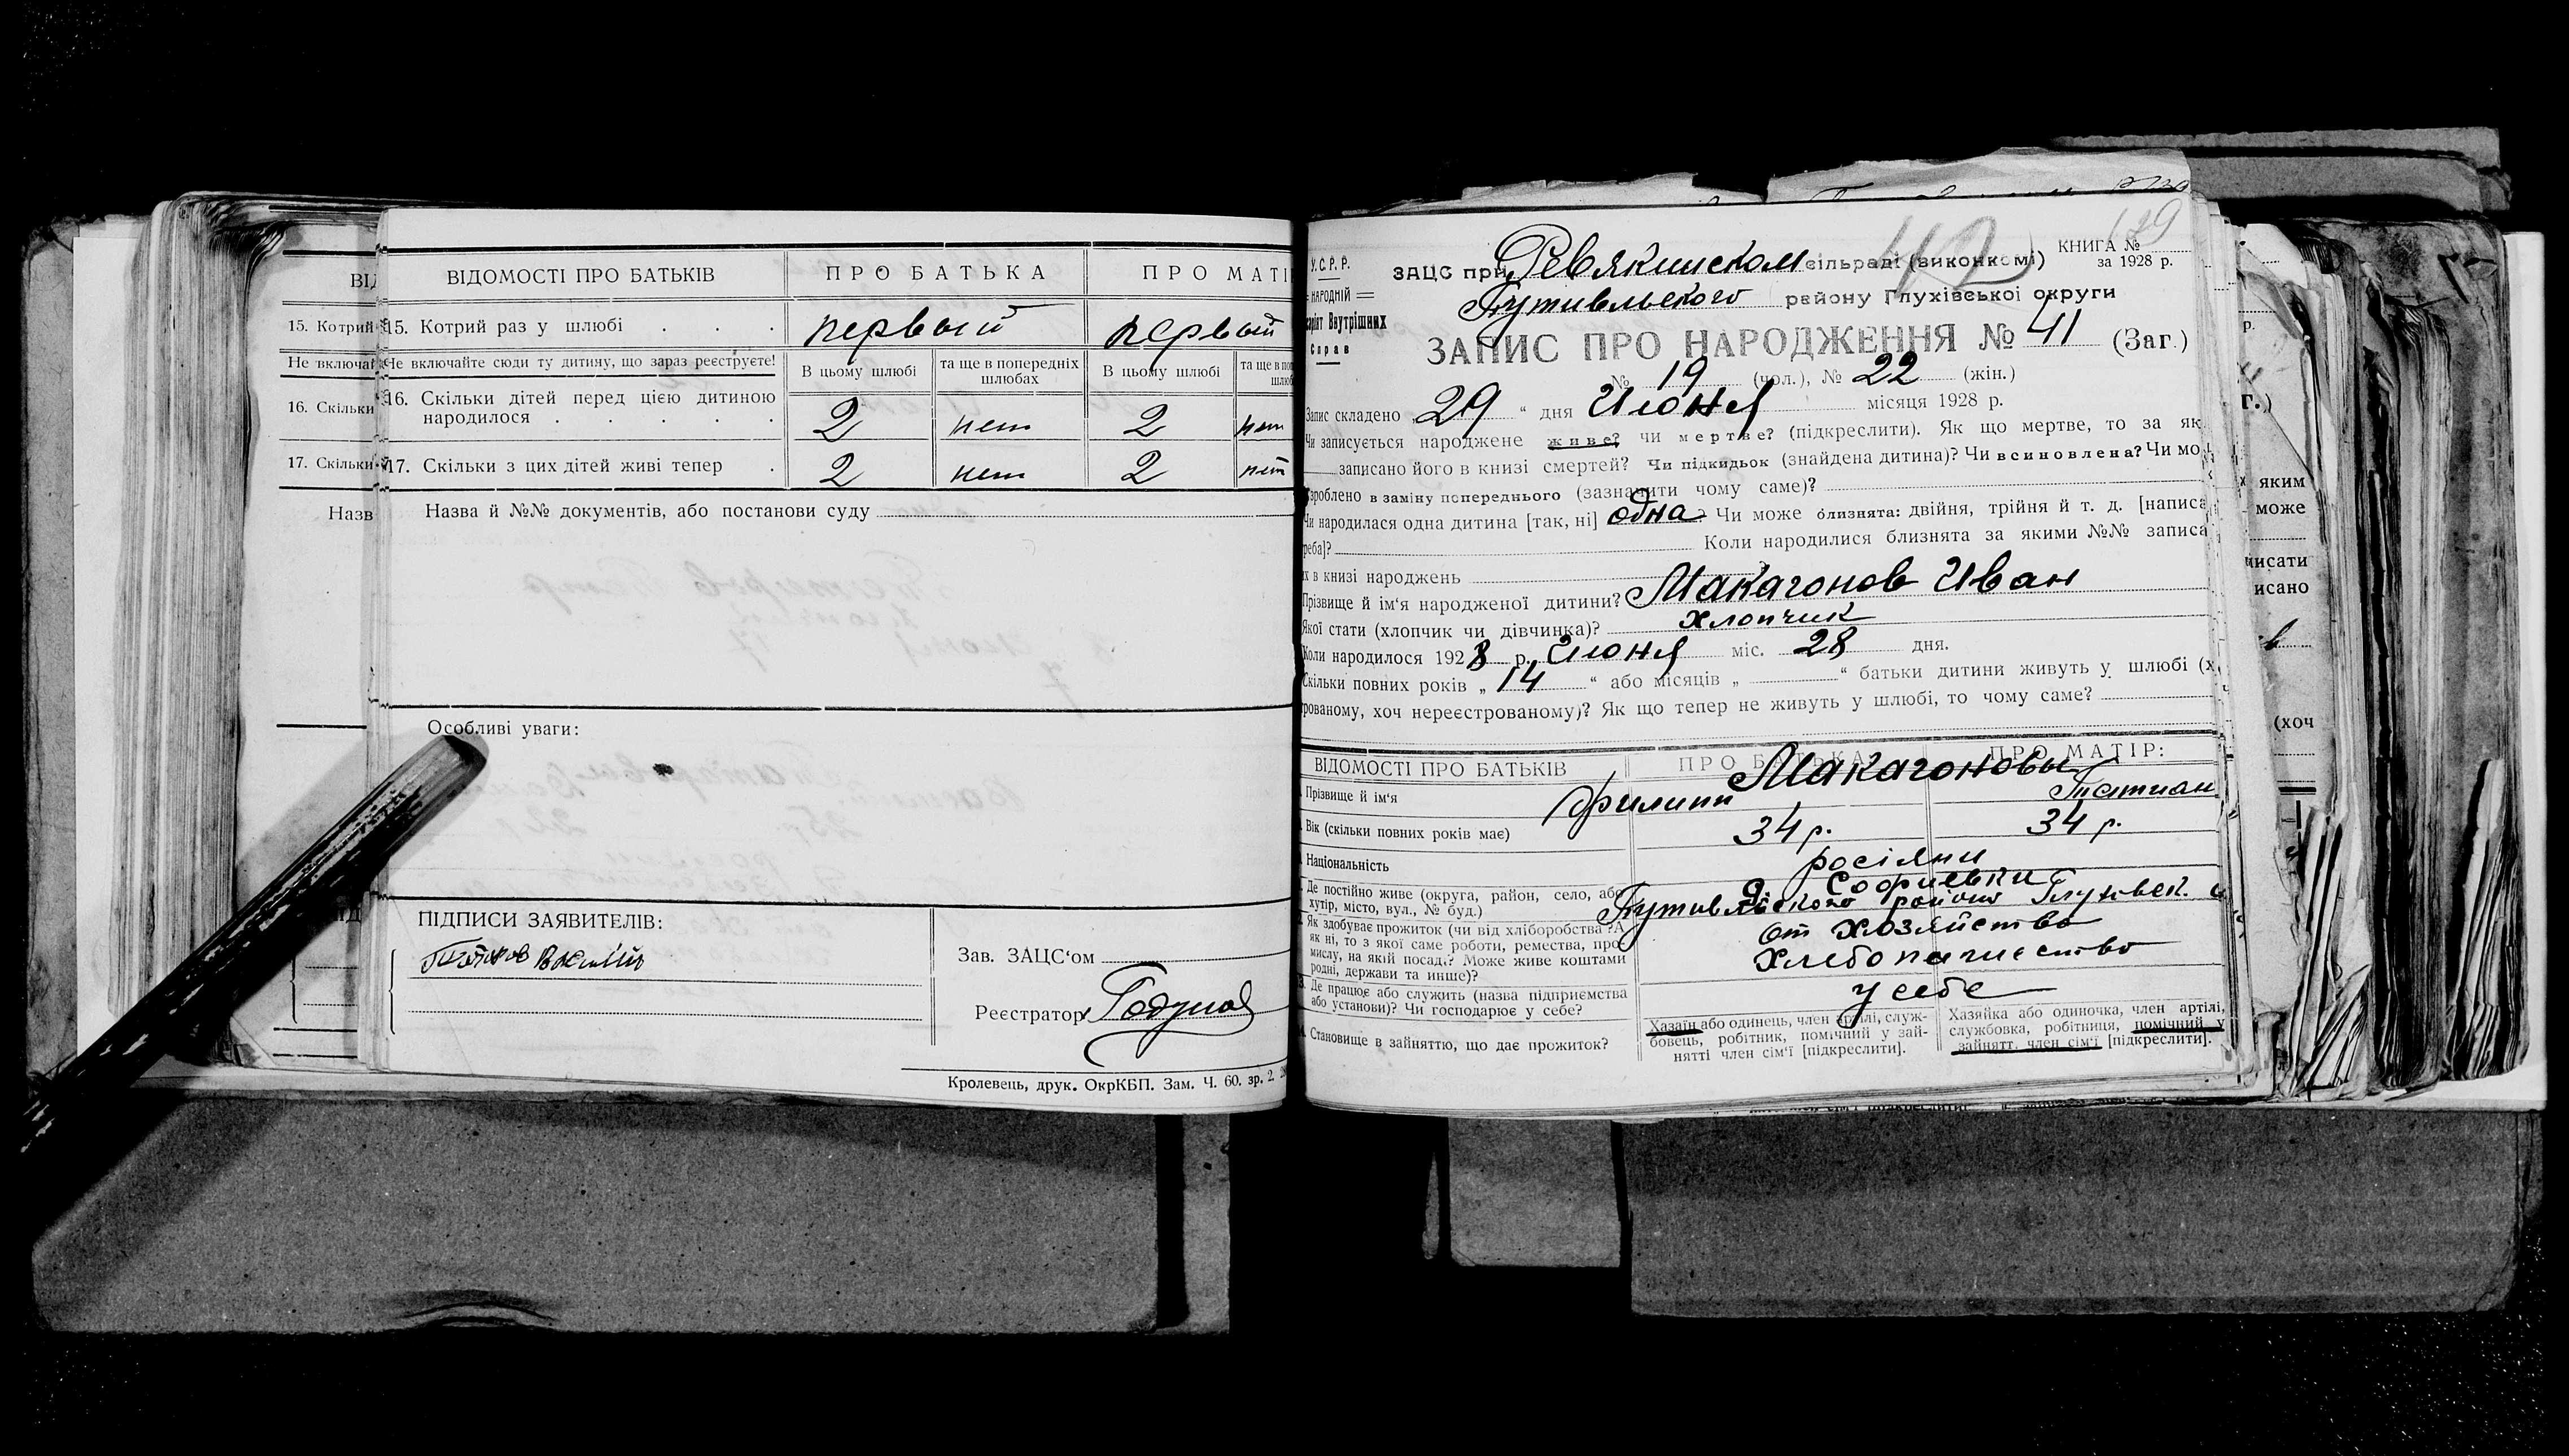 ВІДОМОСТІ ПРО БАТЬКІВ
ПРО БАТЬКА
ПРО МАТІ
15. Котрий
15. Котрий раз у шлюбі . . .
первый
первый
Не включай
Не включайте сюди ту дитину, що зараз реєструєте!
В цьому шлюбі
та ще в попередніх шлюбах
В цьому шлюбі
16. Скільки
16. Скільки дітей перед цією дитиною
народилося . . . . .
2 нет 2 нет
17. Скільки
17. Скільки з цих дітей живі тепер .
2 нет 2 нет
Назв
Назва й №№ документів, або постанови суду
Особливі уваги:
ПІДПИСИ ЗАЯВИТЕЛІВ:
Зав. ЗАЦС'ом
Реєстратор Годунов
Кролевець, друк. ОкрКБП. Зам. Ч. 60. зр. 2.
У.С.Р.Р.
НАРОДНІЙ
Внутрішних
Справ
129
42
КНИГА №
за 1928 р.
ЗАЦС при Ревякинском сільраді (виконкомі)
Путивльского району Глухівської округи
ЗАПИС ПРО НАРОДЖЕННЯ № 41 (Заг.)
№ 19 (чол.), № 22 (жін.)
Запис складено „ 29 “ дня Июня місяця 1928 р.
Чи записується народжене живе? чи мертве? (підкреслити). Як що мертве, то за як
записано його в книзі смертей? Чи підкидьок (знайдена дитина)? Чи всиновлена? Чи мо
зроблено в заміну попереднього (зазначити чому саме)?
Чи народилася одна дитина [так, ні] одна? Чи може близнята: двійня, трійня й т. д. [написа
реба]? Коли народилися близнята за якими №№ записа
їх в книзі народжень
Прізвище й ім'я народженої дитини? Макагонов Иван
Якої стати (хлопчик чи дівчинка)? хлопчик
Коли народилось 1928 р. Июня міс. 28 дня.
Скільки повних років „ 14 “ або місяців „ “ батьки дитини живуть у шлюбі (х
рованому, хоч нереєстрованому)? Як що тепер не живуть у шлюбі, то чому саме?
ВІДОМОСТІ ПРО БАТЬКІВ
ПРО БАТЬКА
ПРО МАТІР:
Макагоновы
Прізвище й ім'я
Филипп
Татиан
Вік (скільки повних років має)
34 р.
34 р.
Національність
росіяни
Де постійно живе (округа, район, село, або
хутір, місто, вул., № буд.)
Софиевки
Путивльского району Глухвск.
Як здобуває прожиток (чи від хліборобства? А
як ні, то з якої саме роботи, ремества, про-
мислу, на якій посаді? Може живе коштами
родні, держави та инше)?
от хозяйство
хлебопашество
Де працює або служить (назва підприємства
або установи)? Чи господарює у себе?
у себе
Становище в зайняттю, що дає прожиток?
Хазаїн або одинець, член артілі, служ-
бовець, робітник, помічний у зай-
нятті член сім'ї [підкреслити].
Хазяйка або одиночка, член артілі,
службовка, робітниця, помічний у
зайнятт. член сім'ї [підкреслити].
яким
може
писати
писано
(хоч